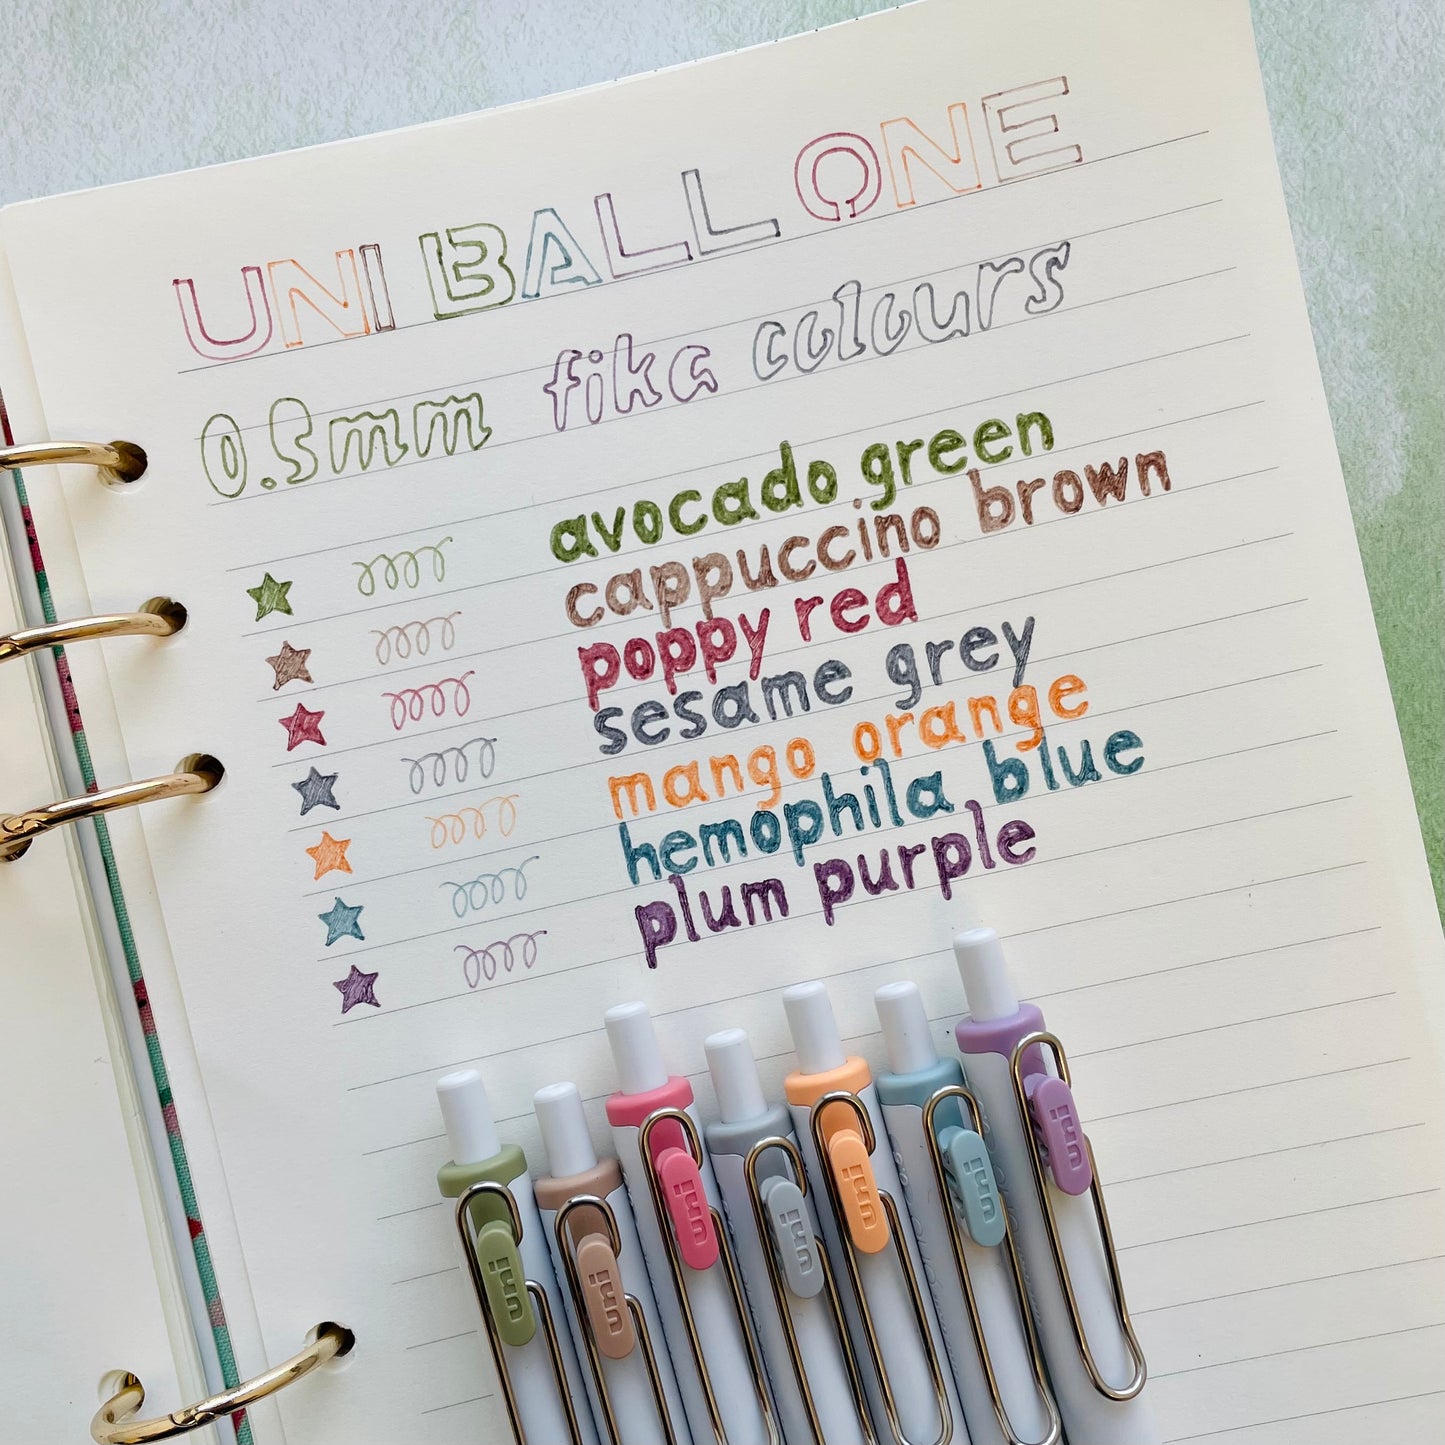 UNI BALL ONE
0.5mm fika colours
avocado green
cappuccino brown
poppy red
sesame grey
mango orange
hemophila blue
plum purple
uni
uni
uni
uni
uni
uni
uni